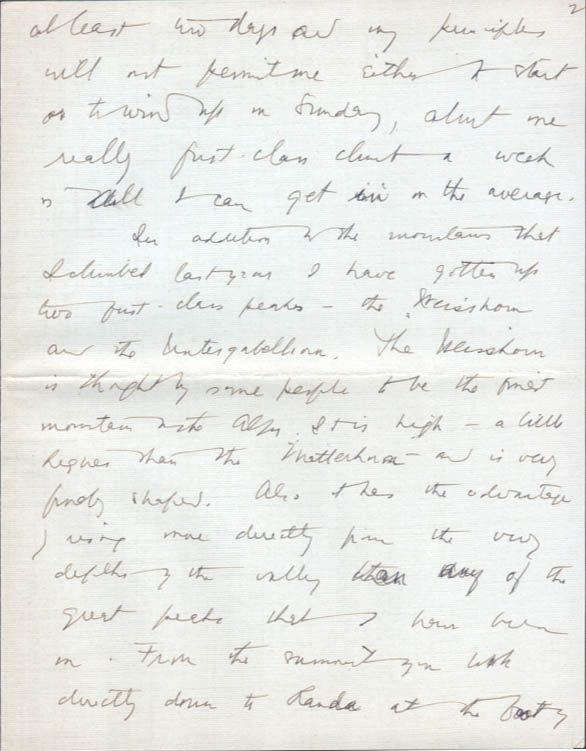 2
at least two days and my principles
will not permit me either to start
or to wind up on Sunday, about one
really first-class climb a week
is all I can get in on the average.
In addition to the mountains that
I climbed last year I have gotten up
two first-class peaks – the Weisshorn
and the Untergabelhorn. The Weisshorn
is thought by some people to be the finest
mountain in the Alps. It is high – a little
higher than the Matterhorn – and is very
finely shaped. Also it has the advantage
of rising more directly from the very
depths of the valley than any of the
great peaks that I have been
on. From the summit you look
directly down to Randa at the foot of